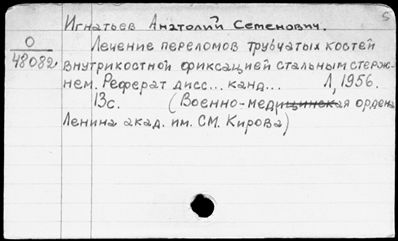 5
Игнатьев Анатолий Семенович.
О
48082
Лечение переломов трубчатых костей
внутрикостной фиксацией стальным стерж-
нем. Реферат дисс... канд... Л, 1956.
13с. (Военно-медицинская ордена
Ленина акад. им. С.М. Кирова)